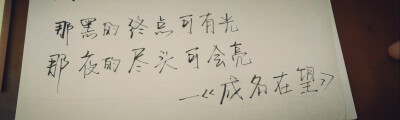 那黑的终点可有光
那夜的尽头可会亮
—《成名在望》